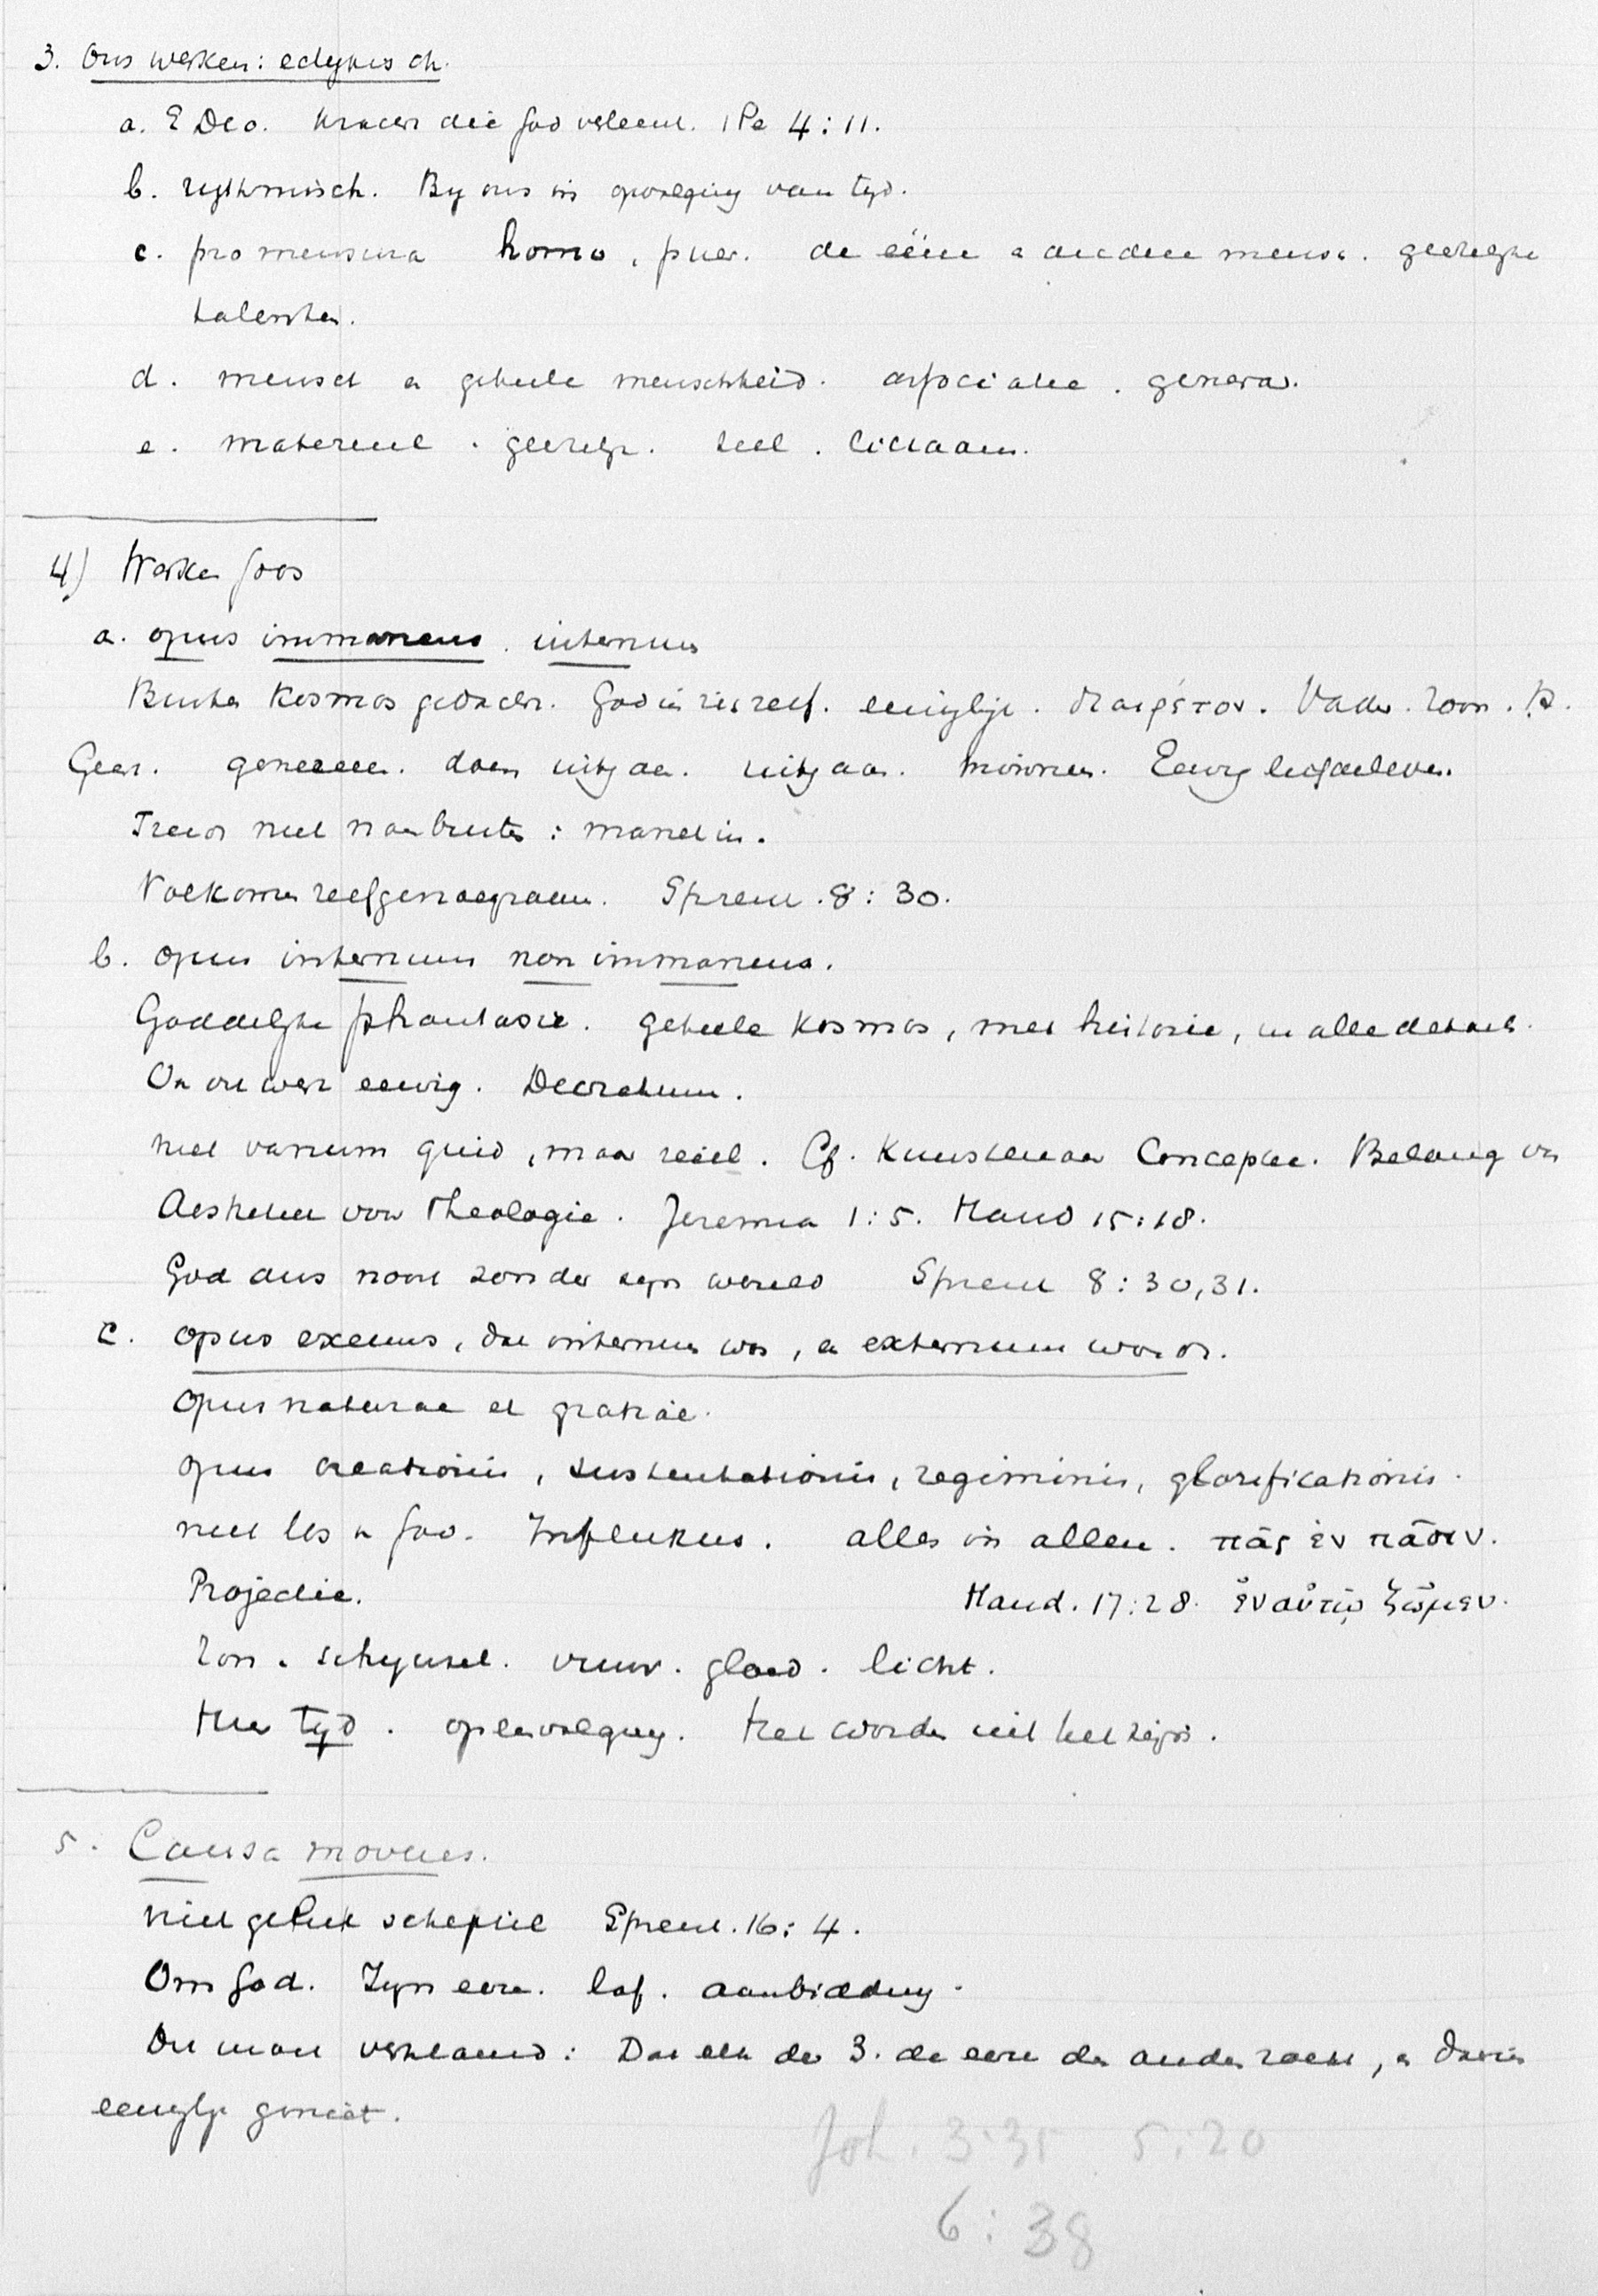 3. Ons werken: ectypisch.
a. E Deo. Kracht die God verleent. 1 Pe 4:11.
b. rythmisch. By ons in opvolging van tyd.
c. pro mensura homo, puer. de ééne & andere mensch. geestelyke
talenten.
d. mensch en geheele menschheid. associatie. generat.
e. materieel. geestelyk. ziel. lichaam.
4) Werken Gods
a. opus immanens. internum
Buiten Kosmos gedacht. God in zichzelf. eeuwiglijk. Vader. Zoon. H.
Geest. genereeren. doen uitgaan. uitgaan. minnen. Eeuwig liefdeleven.
Treedt niet naar buiten: manet in.
Volkomen zelfgenoegzaam. Spreuk. 8:30.
b. opus internum non immanens.
Goddelyke phantasie. geheele Kosmos, met historie, in alle details.
Ook dit werk eeuwig. Decretum.
niet vanum quid, maar reëel. Cf. Kunstenaar Conceptie. Belang van
Aesthetiek voor Theologie. Jeremia 1:5. Hand 15:18.
God dus nooit zonder zyn wereld Spreuk 8:30,31.
c. opus exeuns, dat internum was, en externum wordt.
Opus naturae et gratiae.
opus creationis, sustentationis, regiminis, glorificationis.
niet los van God. Influxus. alles in allen. πᾶς ἐν πᾶσιν.
Projectie. Hand. 17:28. ἐν αὐτῷ ζῶμεν.
Zon. schynsel. vuur. gloed. licht.
Hier tyd. opeenvolging. Het worden uit het zijn.
5. Causa movens.
niet geluk schepsel Spreuk. 16:4.
Om God. Zyn eere. lof. aanbidding.
Dit moet verstaan: Dat elk der 3. de eere der ander zoekt, en daarin
eeuwiglyk geniet.
Joh. 3:35 5:20
6:38